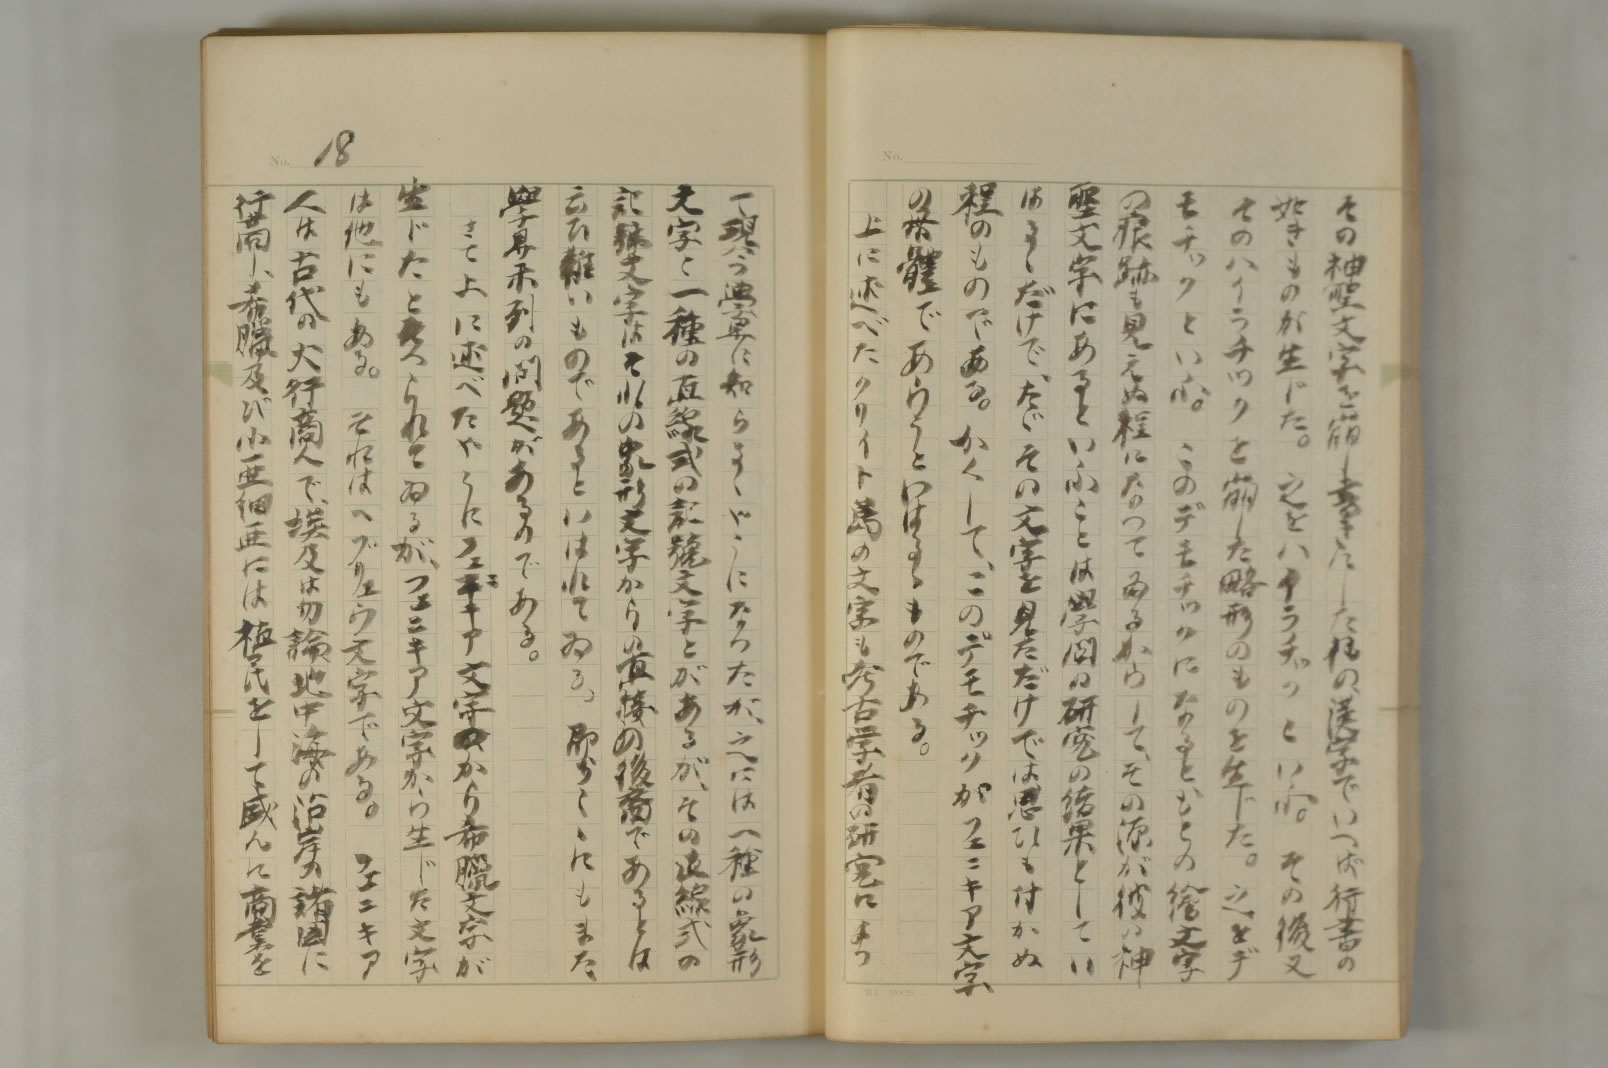 No.
その神聖文字を崩し書きにした様の、漢字でいへば行書の
如きものが生じた。之をハイラチックといふ。その後又
そのハイラチックを崩した略形のものを生じた。之をデ
モチックといふ。このデモチックになるともとの繪文字
の痕跡も見えぬ程になつて居るからして、その源が彼の神
聖文字にあるといふことは學問の研究の結果としてい
はるゝだけで、たゞその文字を見ただけでは思ひも付かぬ
程のものである。かくして、このデモチックがフェニキア文字
の母體であらうといはるゝものである。
上に述べたクリイト島の文字も考古学者の研究によつ
No. 18
て現今異に知らるゝやうになつたが、之には一種の象形
文字と一種の直線式の記號文字とがあるが、その直線式の
記號文字はそれの象形文字からの直接の後裔であるとは
云ひ難いものであるといはれてゐる。即ちこゝにもまた
學界未到の問題があるのである。
さて上に述べたやうにフェニキア文字から希臘文字が
生じたと考へられてゐるが、フェニキア文字から生じた文字
は他にもある。それはヘブリュウ文字である。フェニキア
人は古代の大行商人で、埃及は勿論地中海の沿岸の諸国に
行商し、希臘及び小亜細亜には植民をして盛んに商業を